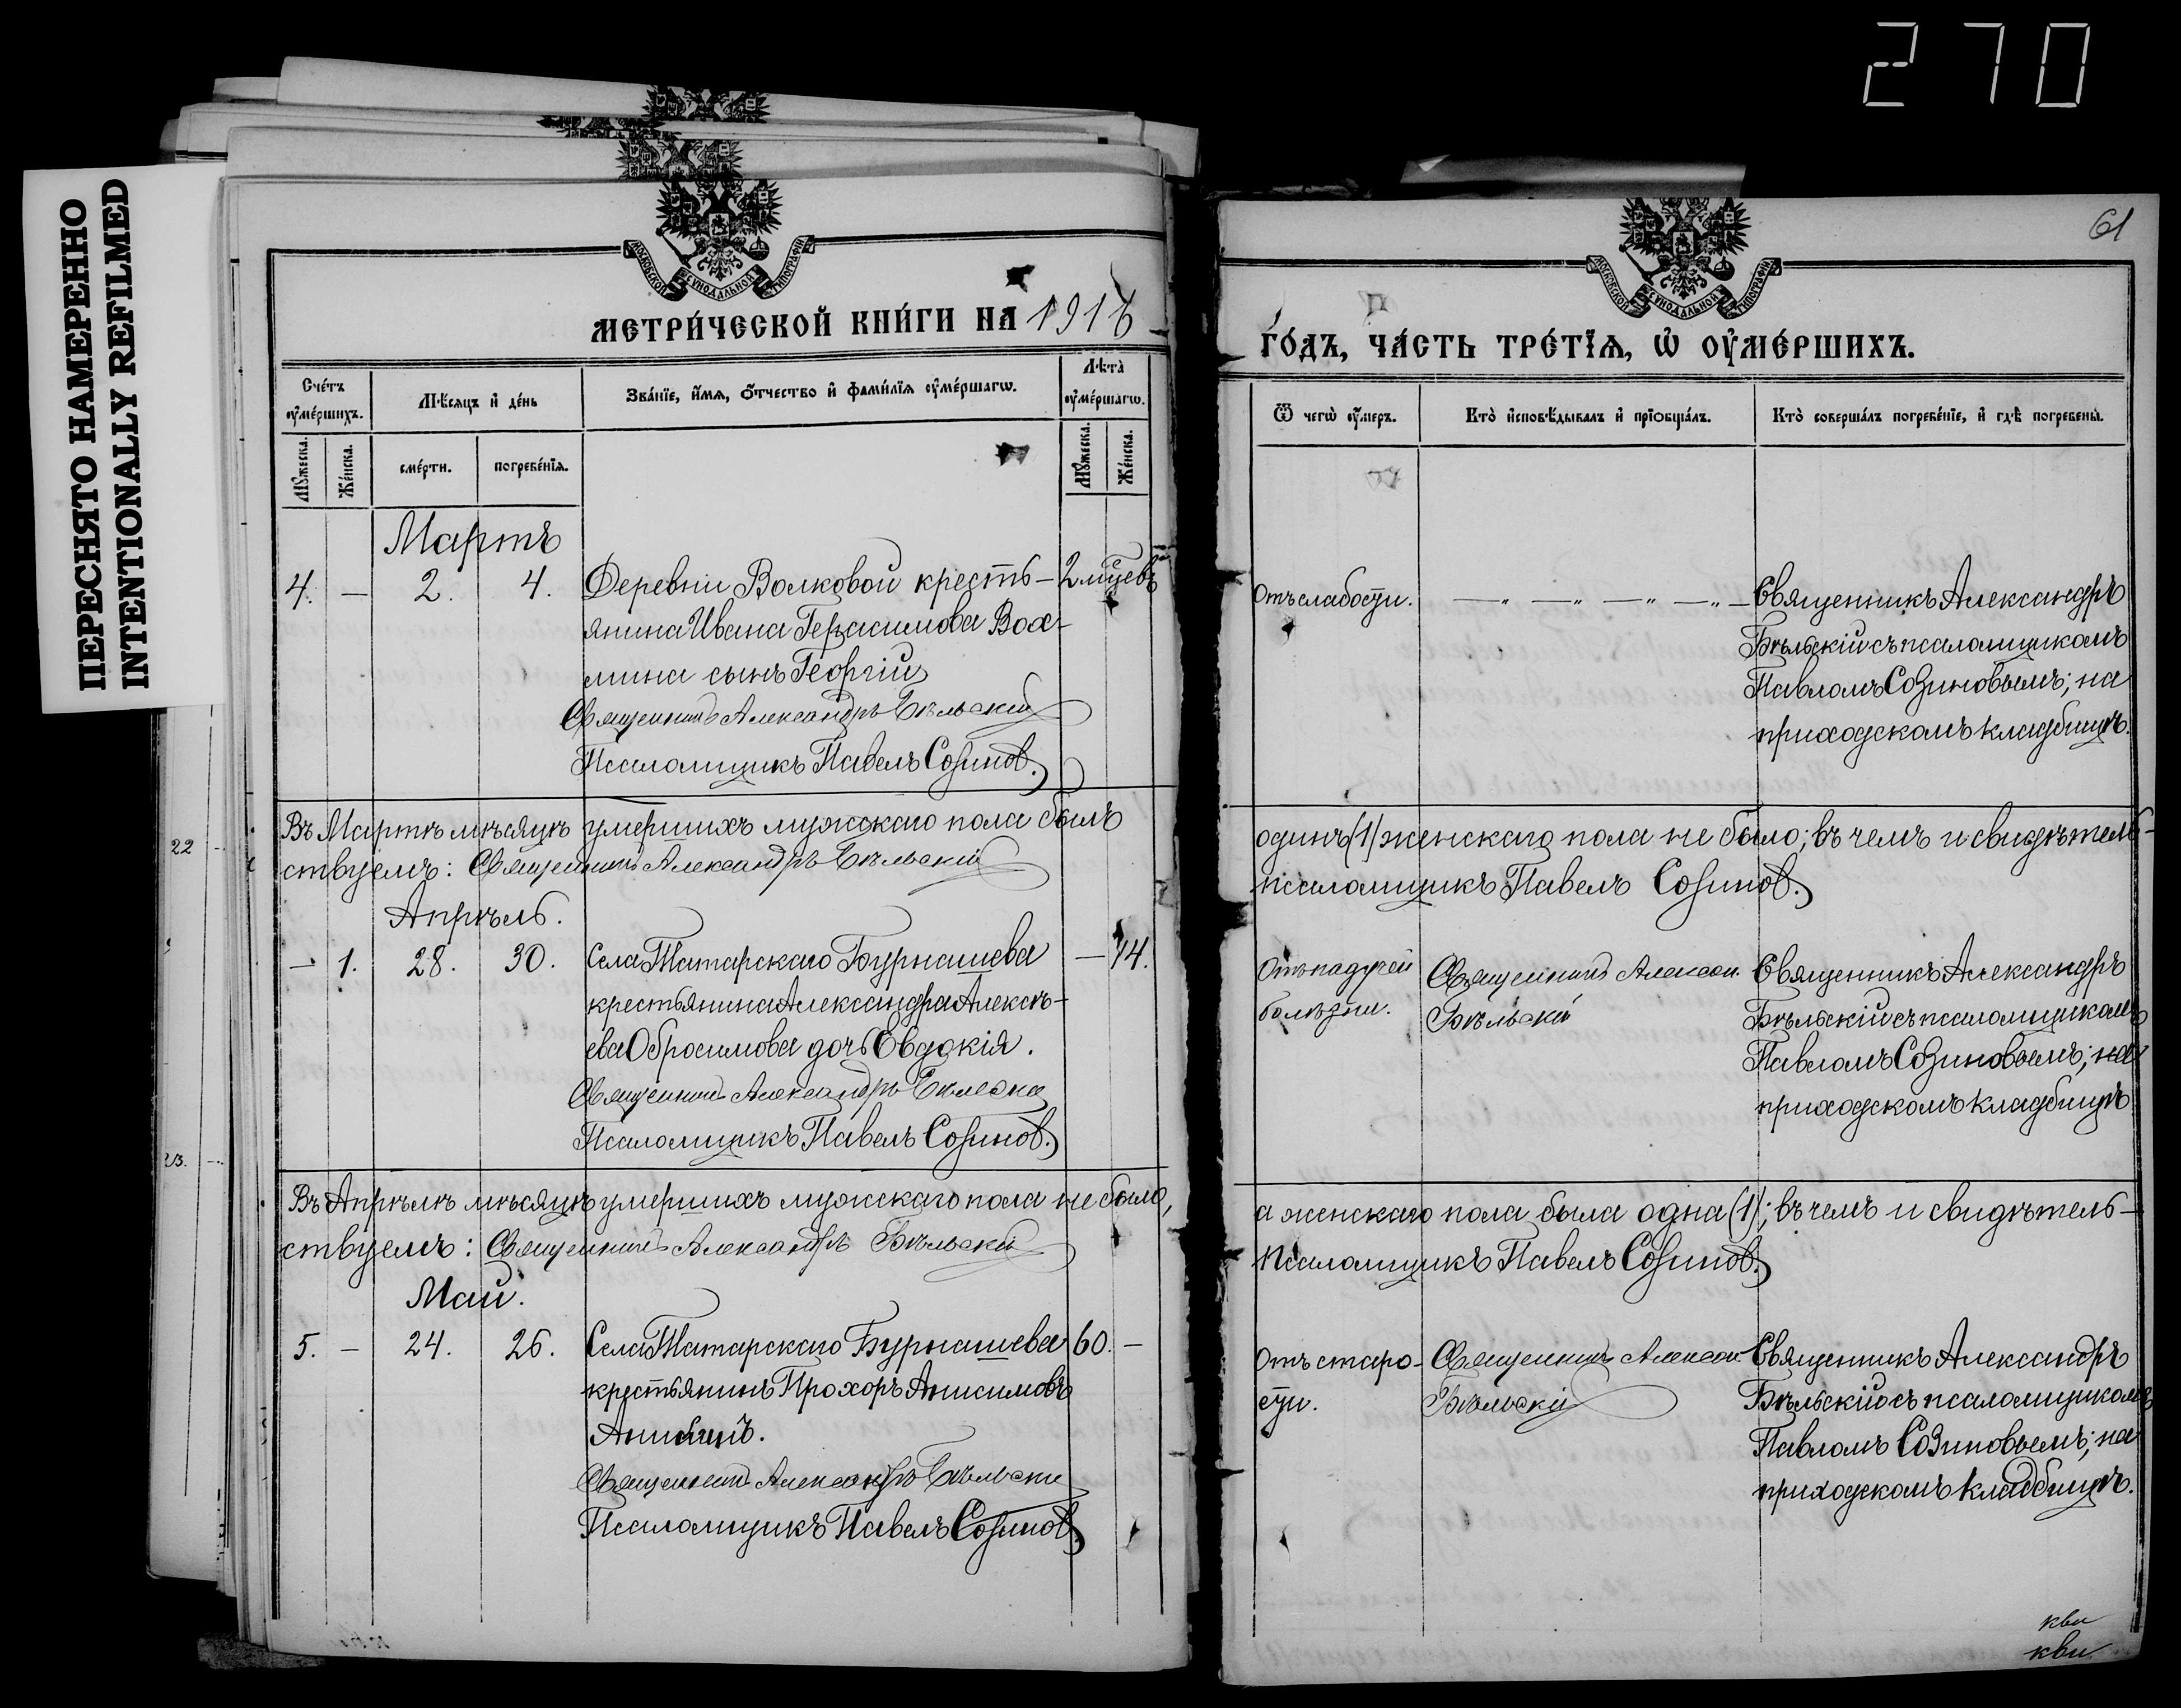 270
ПЕРЕСНЯТО НАМЕРЕННО
INTENTIONALLY REFILMED
61
МОСКОВСКОЙ СѴНОДАЛЬНОЙ ТИПОГРАФІИ
МОСКОВСКОЙ СѴНОДАЛЬНОЙ ТИПОГРАФІИ
МЕТРИ́ЧЕСКОЙ КНИ́ГИ НА 191
ГО́ДЪ, ЧА́СТЬ ТРЕ́ТІѦ, Ѡ ОУ҆МЕ́РШИХЪ.
Сче́тъ оу҆ме́ршихъ.
Мѣ́сяцъ и҆ де́нь
Зва́нїе, и҆́мѧ, ѻ҆́тчество и҆ фами́лїѧ оу҆ме́ршагѡ.
Лѣта̀ оу҆ме́ршагѡ.
Ѿ чегѡ̀ оу҆́меръ.
Кто̀ и҆сповѣ́дывалъ и҆ прїѡбща́лъ.
Кто̀ соверша́лъ погребе́нїе, и҆ гдѣ̀ погребены̀.
Мꙋ́жеска.
Же́нска.
сме́рти.
погребе́нїѧ.
Мꙋ́жеска.
Же́нска.
Мартъ
4. — 2. 4. Деревни Волковой кресть- 2 мѣсцевъ
янина Ивана Герасимова Вах-
мина сынъ Георгій
Священникъ Александръ Бѣльскій
Псаломщикъ Павелъ Созинов.
Отъ слабости. —„—„—„—„—
Священникъ Александръ
Бѣльскій съ псаломщикомъ
Павломъ Созиновымъ; на
приходскомъ кладбищѣ.
Въ Мартѣ мѣсяцѣ умершихъ мужскаго пола былъ одинъ (1) женскаго пола не было; въ чемъ и свидѣтель-
ствуемъ: Священникъ Александръ Бѣльскій псаломщикъ Павелъ Созинов.
Апрѣль.
— 1. 28. 30. Села Татарскаго Бурнашева — 14.
крестьянина Александра Алексѣ-
ева Обросимова дочь Евдокія.
Священникъ Александръ Бѣльскій
Псаломщикъ Павелъ Созинов.
Отъ падучей
болѣзни.
Священникъ Алексан.
Бѣльскій
Священникъ Александръ
Бѣльскій съ псаломщикомъ
Павломъ Созиновымъ; на
приходскомъ кладбищѣ
Въ Апрѣлѣ мѣсяцѣ умершихъ мужскаго пола не было, а женскаго пола была одна (1); въ чемъ и свидѣтель-
ствуемъ: Священникъ Александръ Бѣльскій Псаломщикъ Павелъ Созинов.
Май.
5. — 24. 26. Села Татарскаго Бурнашева 60. —
крестьянинъ Прохоръ Анисимовъ
Священникъ Александръ Бѣльскій
Псаломщикъ Павелъ Созинов
Отъ старо-
сти.
Священникъ Алексан.
Бѣльскій
Священникъ Александръ
Бѣльскій съ псаломщикомъ
Павломъ Созиновымъ; на
приходскомъ кладбищѣ.
22
23.